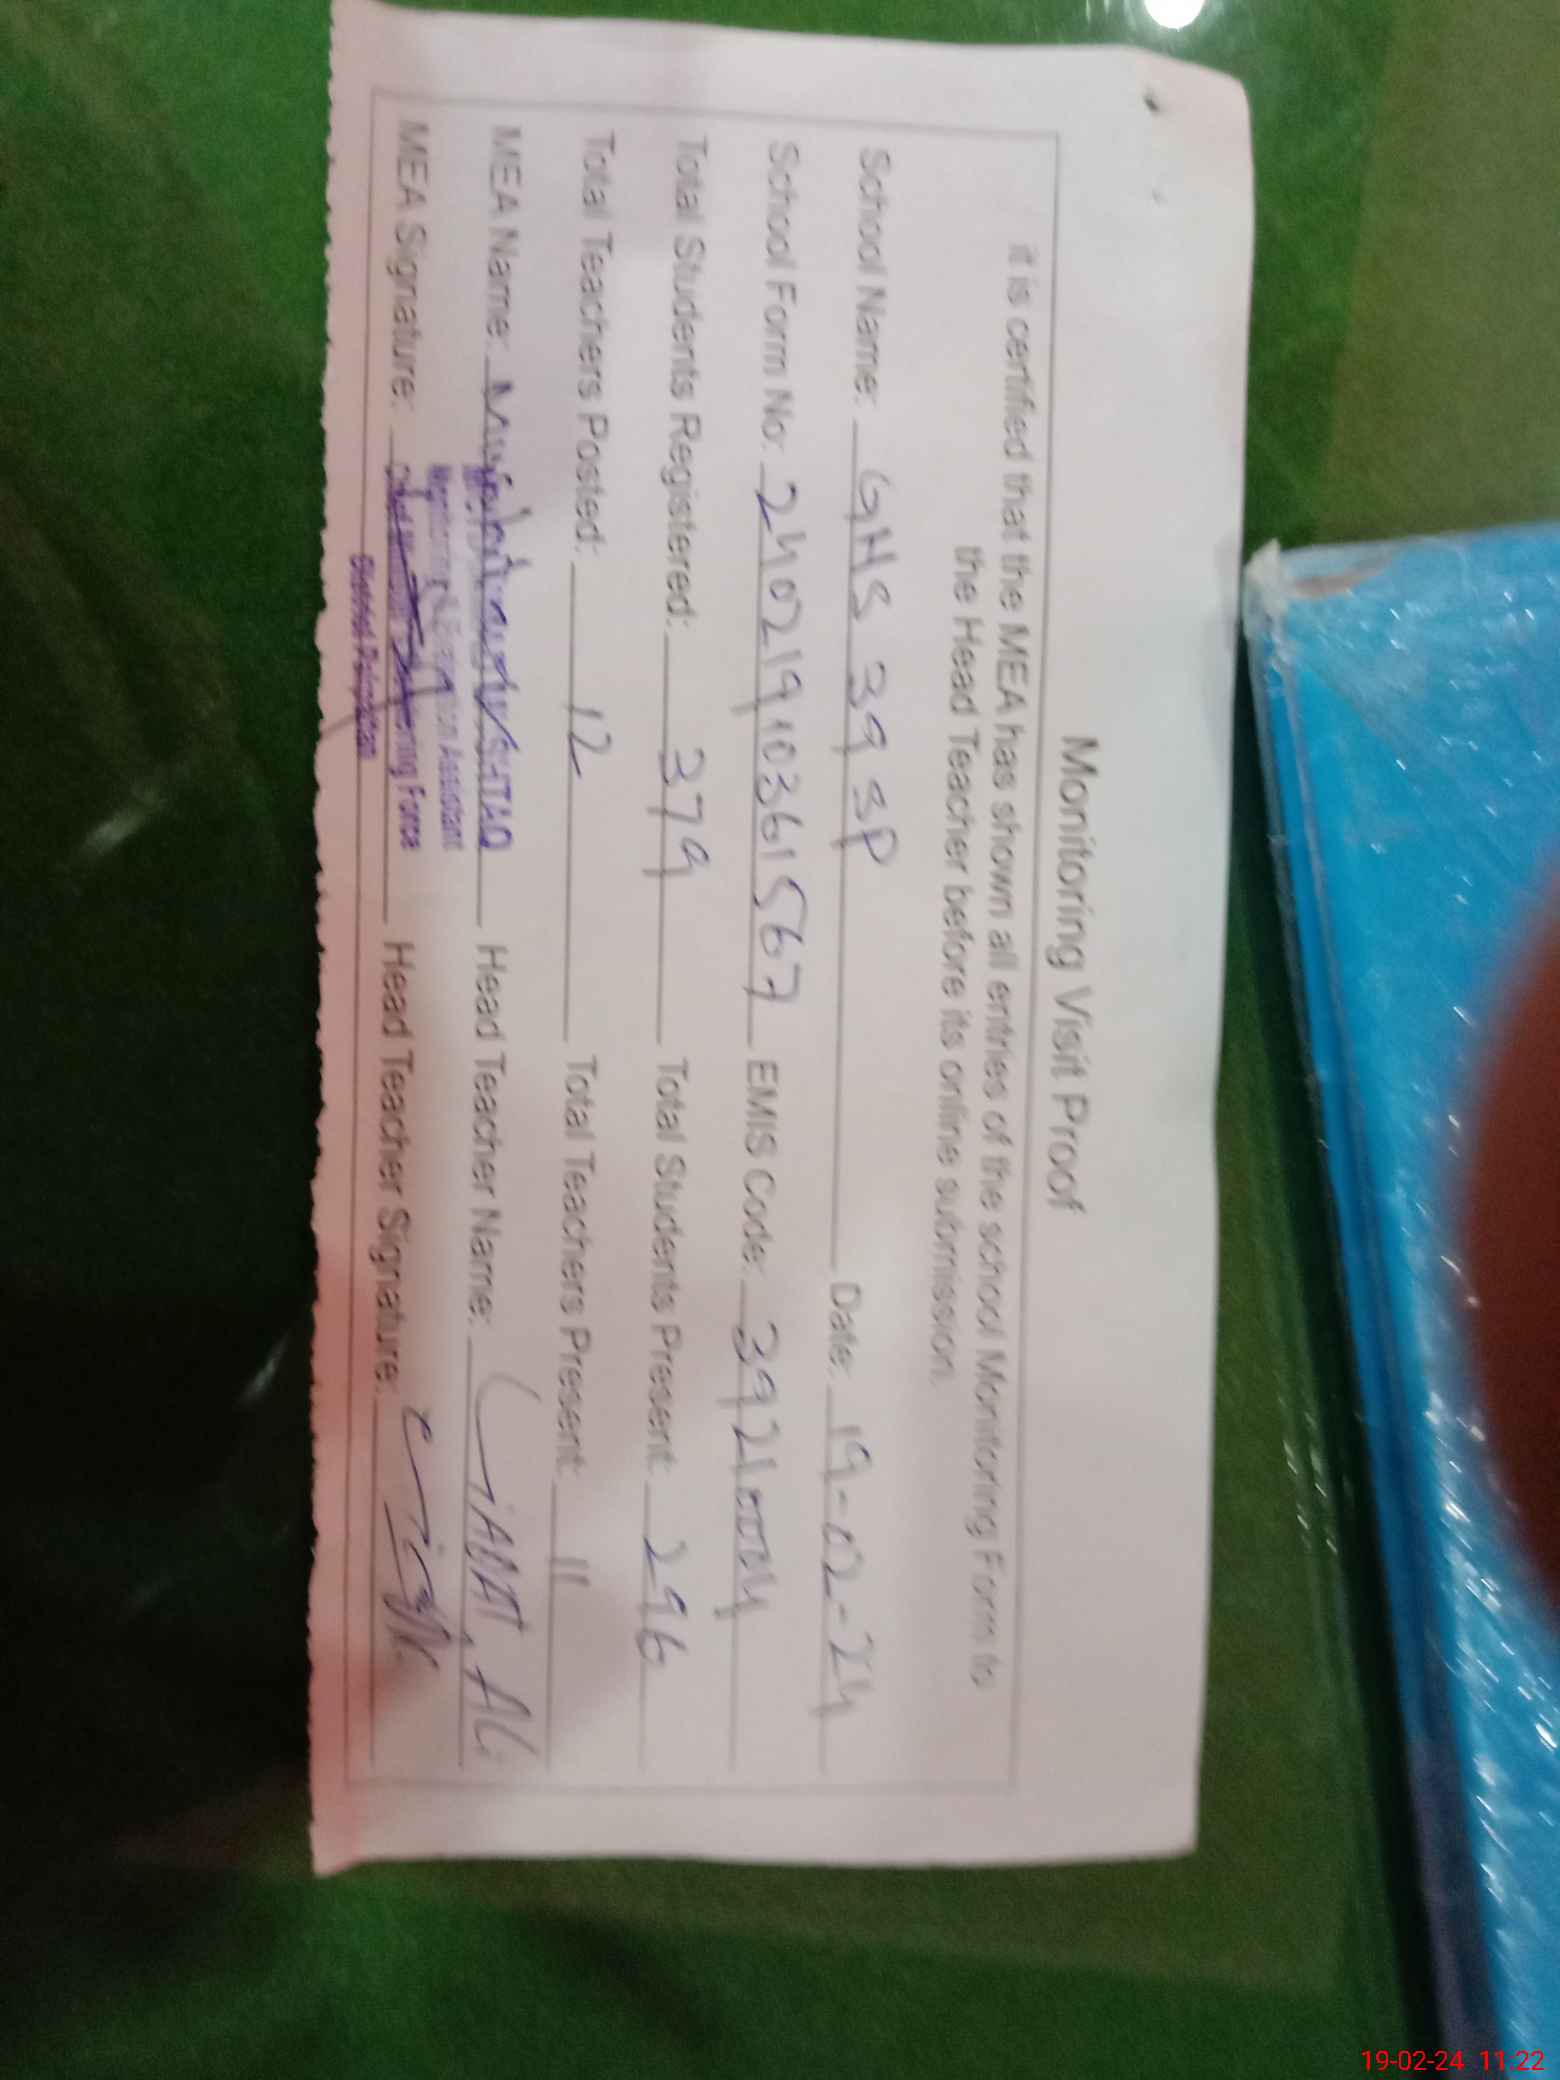 Monitoring Visit Proof
it is certified that the MEA has shown all entries of the school Monitoring Form to
the Head Teacher before its online submission.
School Name: GHS 39 SP Date: 19-02-24
School Form No: 24021910361567 EMIS Code: 39210004
Total Students Registered: 379 Total Students Present: 296
Total Teachers Posted: 12 Total Teachers Present: 11
MEA Name: MUSHTAQ Head Teacher Name: ALi
Monitoring & Evaluation Assistant
MEA Signature: Chief Monitoring Force Head Teacher Signature:
District Pakpattan
19-02-24 11:22